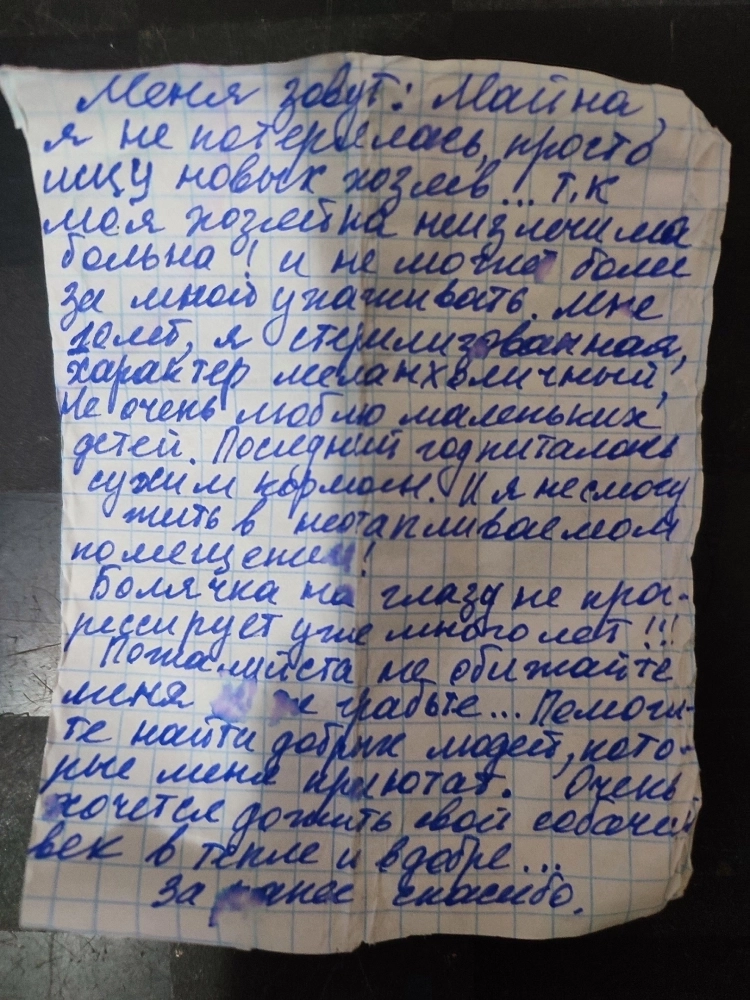 Меня зовут: Майна,
я не потерялась, просто
ищу новых хозяев... т.к
моя хозяйка неизлечима
больна! и не может более
за мной ухаживать. Мне
10лет, я стерилизованная,
характер меланхоличный,
Не очень люблю маленьких
детей. Последний год питалась
сухим кормом. И я не смогу
жить в неотапливаемом
помещении!
Болячка на глазу не прог-
рессирует уже много лет!!!
Пожалуйста не обижайте
меня
те найти добрых людей, кото-
рые меня приютят. Очень
хочется дожить свой собачий
век в тепле и в добре...
За ранее спасибо.